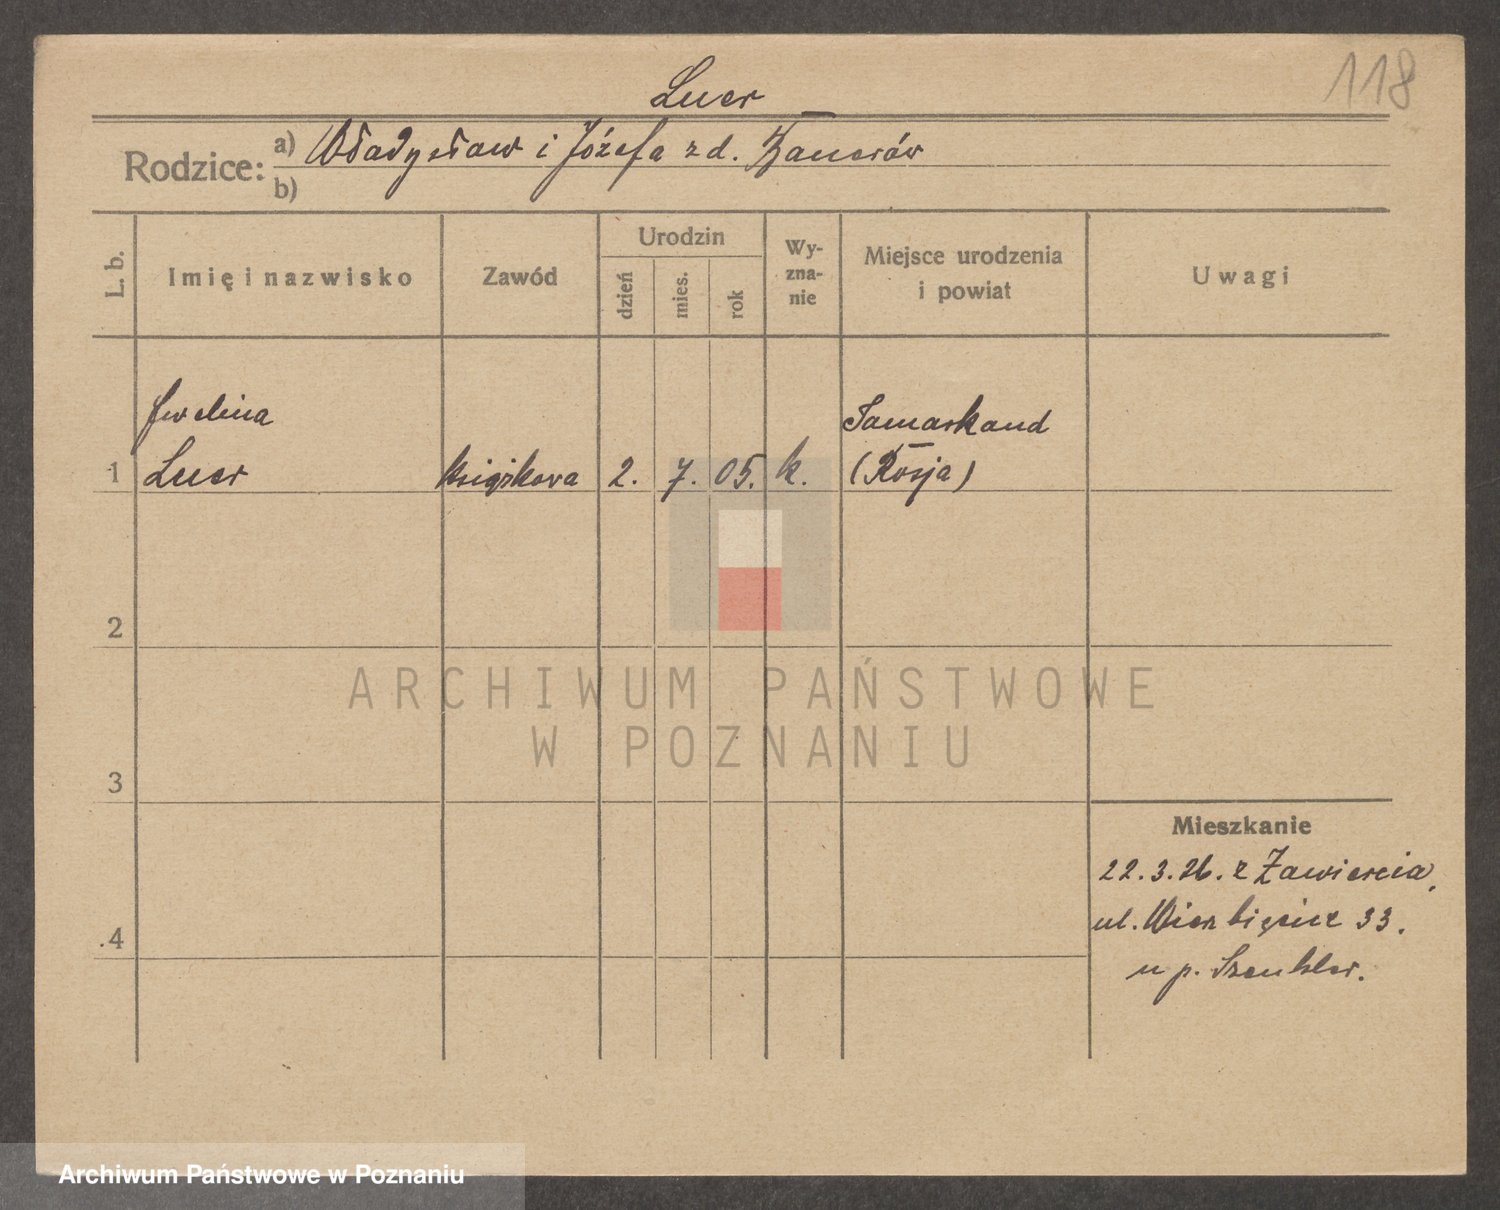 118
Luer
Rodzice: a) Władysław i Józefa z d.
b)
L. b.
Imię i nazwisko
Zawód
Urodzin
dzień
mies.
rok
Wy-
zna-
nie
Miejsce urodzenia
i powiat
Uwagi
Ewelina
Samarkand
1 Luer książkowa 2. 7. 05. k. (Rosja)
2
ARCHIWUM PAŃSTWOWE
W POZNANIU
3
Mieszkanie
22.3.26. z Zawiercia,
ul. Wierzbięcice 33.
4
u p.
Archiwum Państwowe w Poznaniu